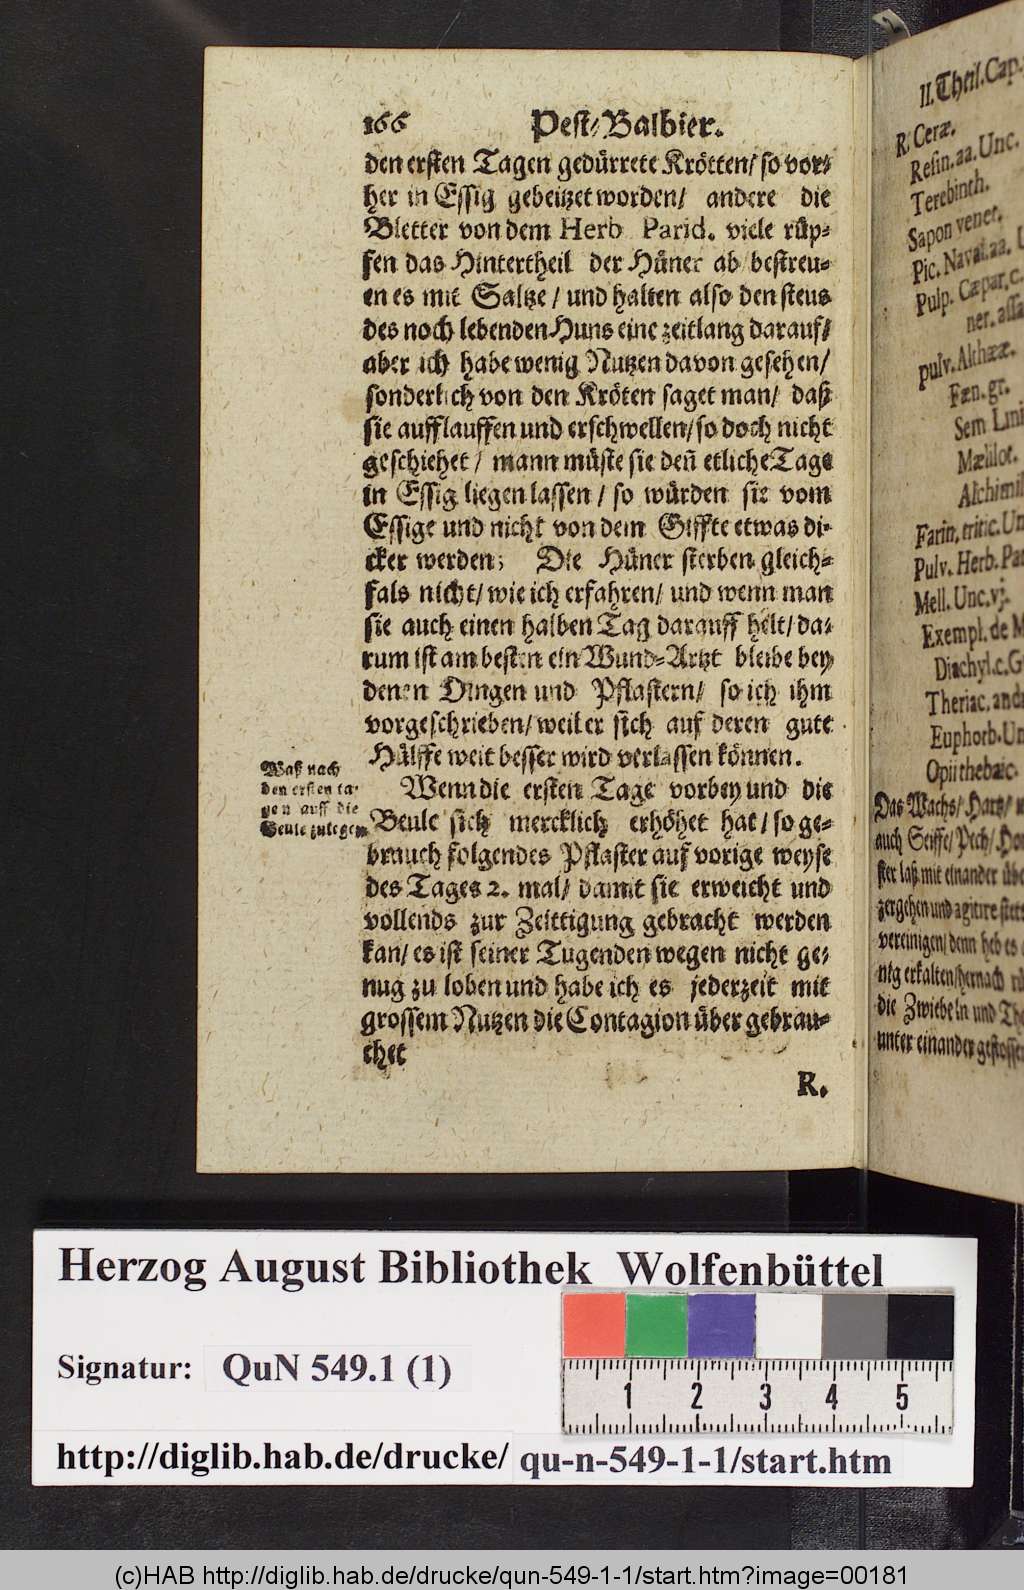 166 Pest-Balbier.
den ersten Tagen gedürrete Krötten/ so vor-
her in Essig gebeitzet worden/ andere die
Bletter von dem Herb Parid. viele rüp-
fen das Hintertheil der Hüner ab/ bestreu-
en es mit Saltze/ und halten also den steus
des noch lebenden Huns eine zeitlang darauf/
aber ich habe wenig Nutzen davon gesehen/
sonderlich von den Kröten saget man/ daß
sie aufflauffen und erschwellen/ so doch nicht
geschiehet/ mann müste sie den̄ etliche Tage
in Essig liegen lassen/ so würden sie vom
Essige und nicht von dem Giffte etwas di-
cker werden; Die Hüner sterben gleich-
fals nicht/ wie ich erfahren/ und wenn man
sie auch einen halben Tag darauff helt/ da-
rum ist am besten ein Wund-Artzt bleibe bey
denen Dingen und Pflastern/ so ich ihm
vorgeschrieben/ weil er sich auf deren gute
Hülffe weit besser wird verlassen können.
Waß nach
den ersten ta-
gen auff die
Beule zulegen
Wenn die ersten Tage vorbey und die
Beule sich mercklich erhöhet hat/ so ge-
brauch folgendes Pflaster auf vorige weyse
des Tages 2. mal/ damit sie erweicht und
vollends zur Zeittigung gebracht werden
kan/ es ist seiner Tugenden wegen nicht ge-
nug zu loben und habe ich es jederzeit mit
grossem Nutzen die Contagion über gebrau-
chet
R.
2
II. Theil. Cap.
R. Ceræ.
Resin. aa. Unc.
Terebinth.
Sapon venet.
Pic. Naval. aa.
Pulp. Cæpar. c.
ner. assa
pulv. Althææ.
Fæn. gr.
Sem Lini
Mælilot.
Alchimil
Farin. tritic. Un
Pulv. Herb. Par
Mell. Unc. vj.
Exempl. de M
Diachyl. c. G
Theriac. and
Euphorb. Un
Opii thebaic.
Das Wachs/ Hartz/
auch Seiffe/ Pech/
ster laß mit einander übe
zergehen und agitire stets
vereinigen/ denn heb es
nig erkalten/ hernach rü
die Zwiebeln und The
unter einander gestossen
Herzog August Bibliothek Wolfenbüttel
Signatur: QuN 549.1 (1)
1 2 3 4 5
http://diglib.hab.de/drucke/ qu-n-549-1-1/start.htm
(c)HAB http://diglib.hab.de/drucke/qun-549-1-1/start.htm?image=00181